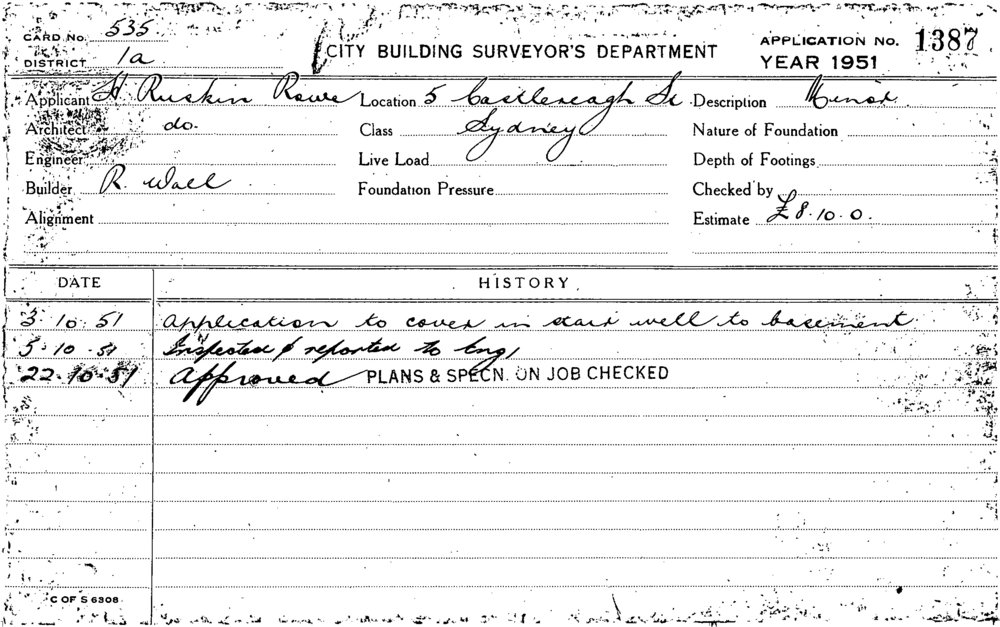 CARD No. 535
DISTRICT 1a
CITY BUILDING SURVEYOR'S DEPARTMENT
APPLICATION No. 1387
YEAR 1951
Applicant H Ruskin Rowe Location 5 Castlereagh St Description Minor
Architect do. Class Sydney Nature of Foundation
Engineer Live Load Depth of Footings
Builder R. Wall Foundation Pressure Checked by
Alignment Estimate £8.10.0.
DATE HISTORY
3.10.51 Application to cover in stair well to basement
5.10.51 Inspected & reported to Eng,
22.10.51 Approved PLANS & SPECN. ON JOB CHECKED
C OF S 6308